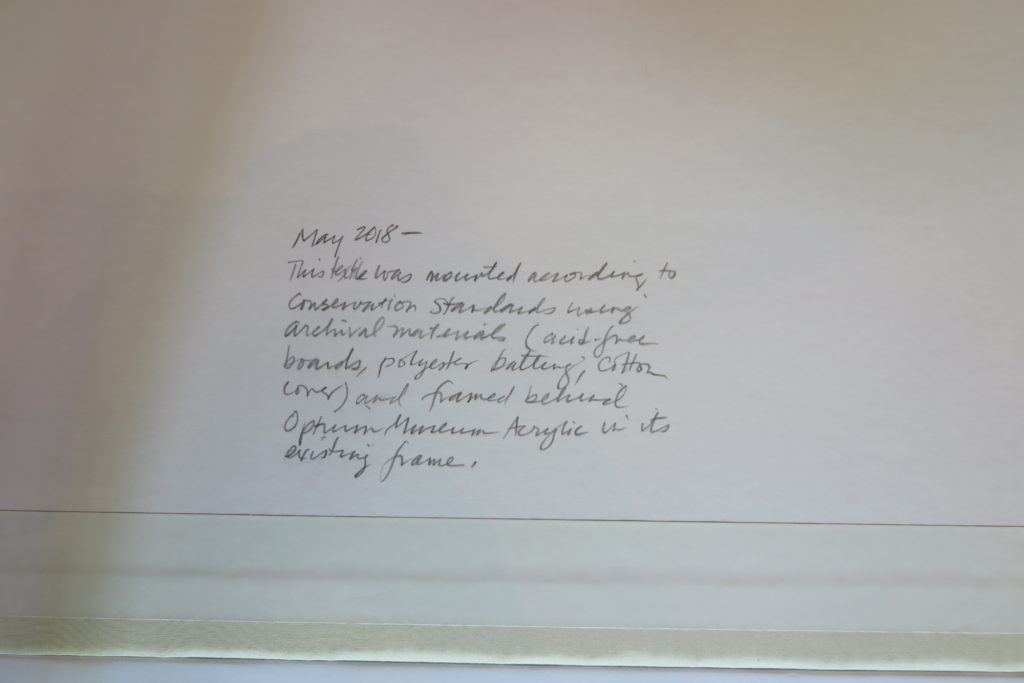 May 2018 -
This textile was mounted according to
Conservation Standards using
archival materials (acid-free
boards, polyester batting, cotton
cover) and framed behind
Optium Museum Acrylic in its
existing frame.